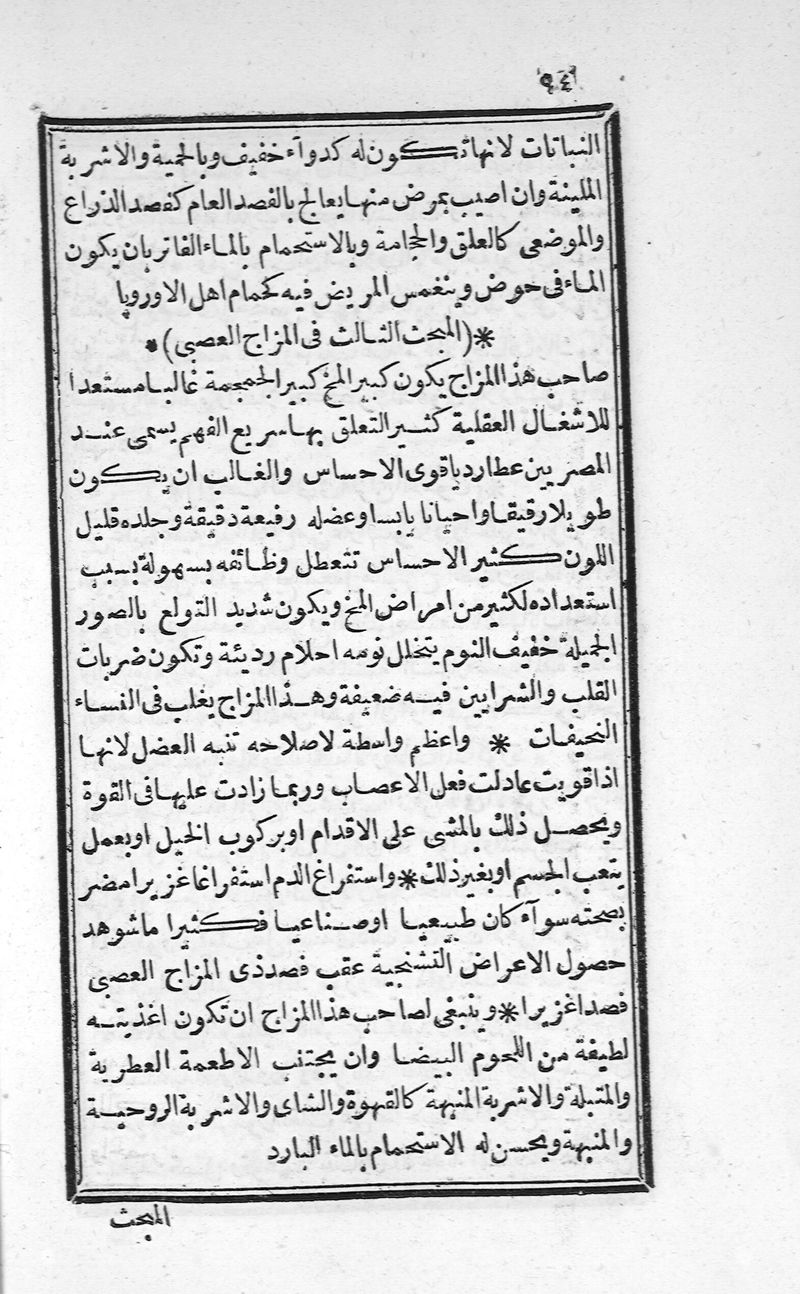 ٩٤
النباتات لانها تكون له كدوآء خفيف وبالحمية والاشربة
الملينة وان اصيب بمرض منها يعالج بالفصد العام كفصد الذراع
والموضعى كالعلق والحجامة وبالاستحمام بالماء الفاتر بان يكون
الماء فى حوض وينغمس المريض فيه كحمام اهل الاوروپا
*(المبحث الثالث فى المزاج العصبى)*
صاحب هذا المزاج يكون كبير المخ كبير الجمجمة غالبا مستعدا
للاشغال العقلية كثير التعلق بها سريع الفهم يسمى عند
المصريين عطارديا قوى الاحساس والغالب ان يكون
طويلا رقيقا واحيانا يابسا وعضله رفيعة دقيقة وجلده قليل
اللون كثير الاحساس تتعطل وظائفه بسهولة بسبب
استعداده لكثير من امراض المخ ويكون شديد التولع بالصور
الجميلة خفيف النوم يتخلل نومه احلام رديئة وتكون ضربات
القلب والشرايين فيه ضعيفة وهذا المزاج يغلب فى النساء
النحيفات * واعظم واسطة لاصلاحه تنبه العضل لانها
اذا قويت عادلت فعل الاعصاب وربما زادت عليها فى القوة
ويحصل ذلك بالمشى على الاقدام او بركوب الخيل او بعمل
يتعب الجسم او بغير ذلك * واستفراغ الدم استفراغا غزيرا مضر
بصحته سوآء كان طبيعيا او صناعيا فكثيرا ما شوهد
حصول الاعراض التشنجية عقب فصد ذى المزاج العصبى
فصدا غزيرا * وينبغى لصاحب هذا المزاج ان تكون اغذيته
لطيفة من اللحوم البيضا وان يجتنب الاطعمة العطرية
والمتبلة والاشربة المنبهة كالقهوة والشاى والاشربة الروحية
والمنبهة ويحسن له الاستحمام بالماء البارد
المبحث